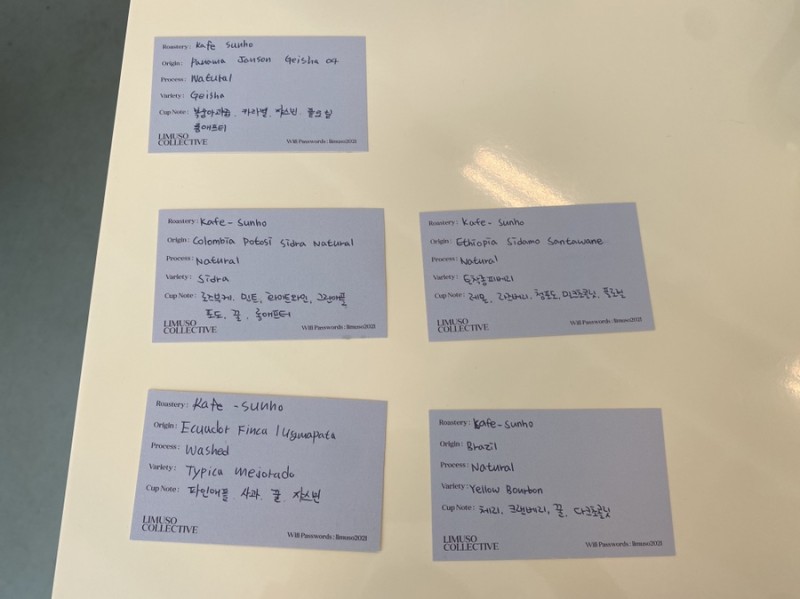 Roastery: Kafe sunho
Origin: Panama Janson Geisha 04
Process: Natural
Variety: Geisha
Cup Note: 카라멜, 자스민, 플로럴
롱애프터
LIMUSO
COLLECTIVE
Wifi Passwords : limuso2021
Roastery: Kafe - Sunho
Origin: Colombia Potosi Sidra Natural
Process: Natural
Variety: Sidra
Cup Note: 로즈부케, 민트, 화이트와인, 그린애플
포도, 꿀, 롱애프터
LIMUSO
COLLECTIVE
Wifi Passwords : limuso2021
Roastery: Kafe - Sunho
Origin: Ethiopia Sidamo Santawane
Process: Natural
Variety: 토착종피베리
Cup Note: 레몬, 청포도, 밀크초콜릿, 플로럴
LIMUSO
COLLECTIVE
Wifi Passwords : limuso2021
Roastery: Kafe - sunho
Origin: Ecuador Finca
Process: Washed
Variety: Typica mejorado
Cup Note: 파인애플, 사과, 꿀, 자스민
LIMUSO
COLLECTIVE
Wifi Passwords : limuso2021
Roastery: Kafe - Sunho
Origin: Brazil
Process: Natural
Variety: Yellow Bourbon
Cup Note: 체리, 크랜베리, 꿀, 다크초콜릿
LIMUSO
COLLECTIVE
Wifi Passwords : limuso2021